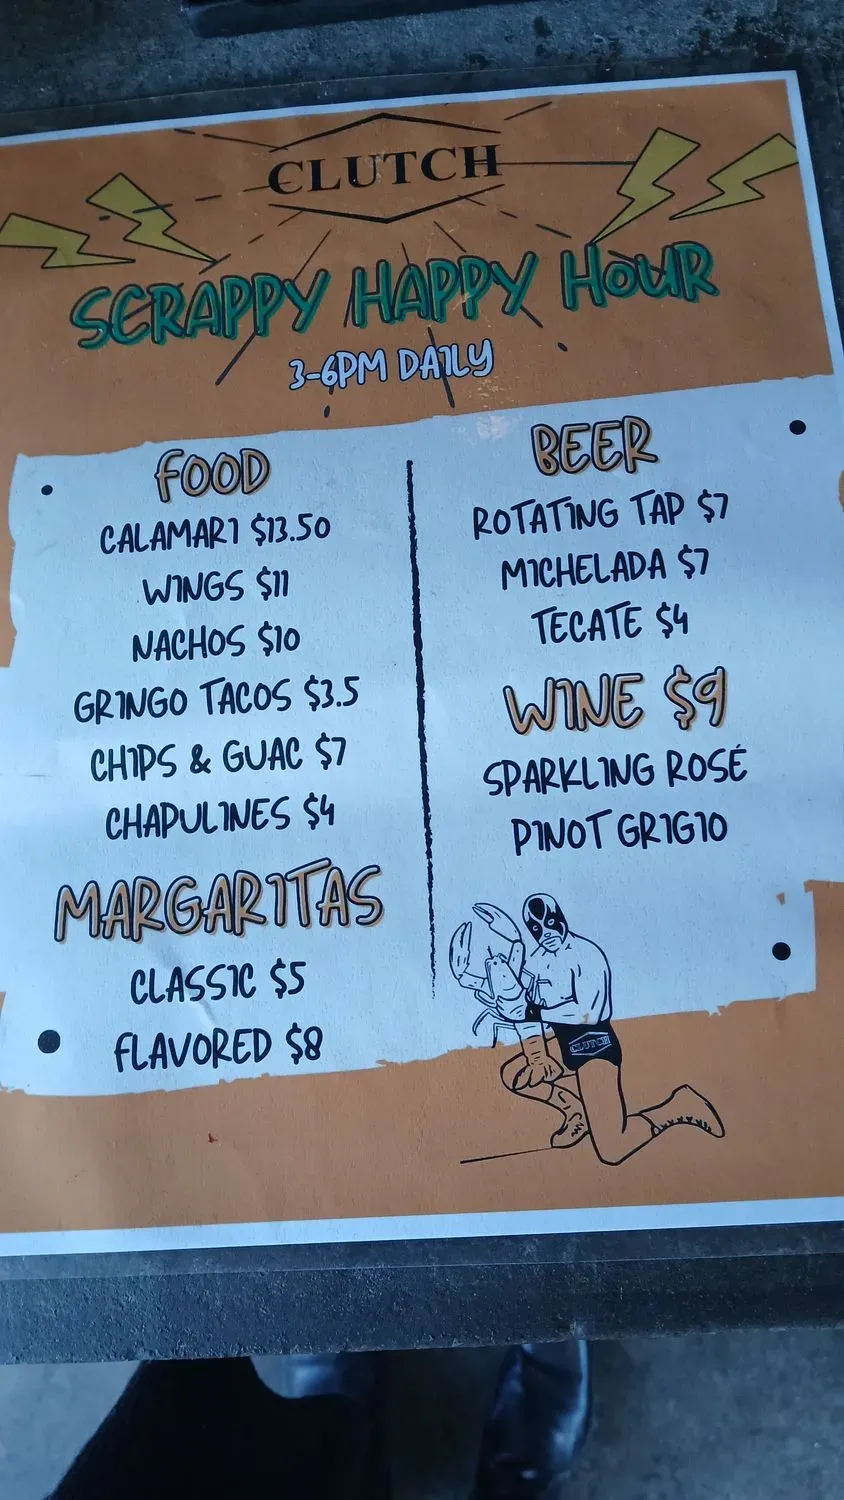 CLUTCH
SCRAPPY HAPPY HOUR
3-6PM DAILY
FOOD
CALAMARI $13.50
WINGS $11
NACHOS $10
GRINGO TACOS $3.5
CHIPS & GUAC $7
CHAPULINES $4
MARGARITAS
CLASSIC $5
FLAVORED $8
BEER
ROTATING TAP $7
MICHELADA $7
TECATE $4
WINE $9
SPARKLING ROSÉ
PINOT GRIGIO
CLUTCH